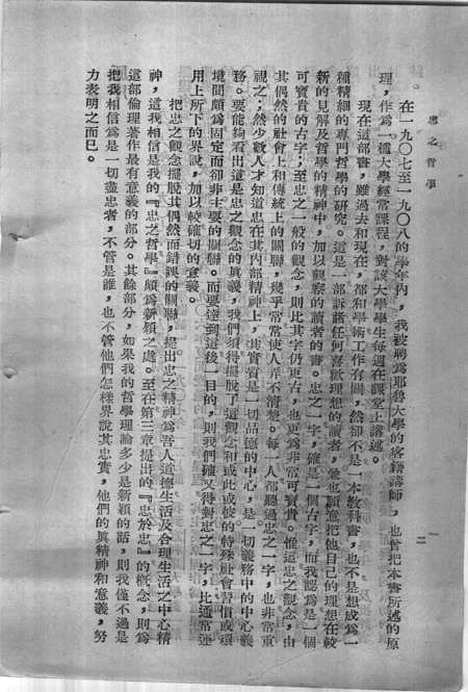 忠之哲學
二
在一九〇七至一九〇八的學年內，我被聘為耶魯大學的客籍講師，也曾把本書所述的原
理，作為一種大學經常課程，對該大學學生每週在課堂上講述。
現在這部書，雖過去和現在，都和學術工作有關，然卻不是一本教科書，也不是想成為一
種精細的專門哲學的研究。這是一部訴諸任何喜歡理想的讀者，像也願意把他自己的理想在較
新的見解及哲學的精神中，加以觀察的讀者的書。忠之一字，確是一個古字，而我認為是一個
可寶貴的古字；至忠之一般的觀念，則比其字仍更古，也更為非常可寶貴。惟這忠之觀念，由
其偶然的社會上和傳統上的關聯，幾乎常常使人弄不清楚。每一人都聽過忠之一字，也非常重
視之；然少數人才知道忠在其內部精神上，其實質是一切品德的中心，是一切義務中的中心義
務。要能夠看出這是忠之觀念的真義，我們須得擺脫了這觀念和或此或彼的特殊社會習慣或環
境間頗為固定而卻非主要的關聯。而要達到這後一目的，則我們確又得對忠之一字，比通常運
用上所下的界說，加以較確切的意義。
把忠之觀念擺脫其偶然而錯誤的關聯，提出忠之精神為吾人道德生活及合理生活之中心精
神，這我相信是我的『忠之哲學』頗為新穎之處。至在第三章提出的『忠於忠』的概念，則為
這部倫理著作最有意義的部分。其餘部分，如果我的哲學理論多少是新穎的話，則我僅不過是
把我相信為是一切盡忠者，不管是誰，也不管他們怎樣界說其忠實，他們的真精神和意義，努
力表明之而已。